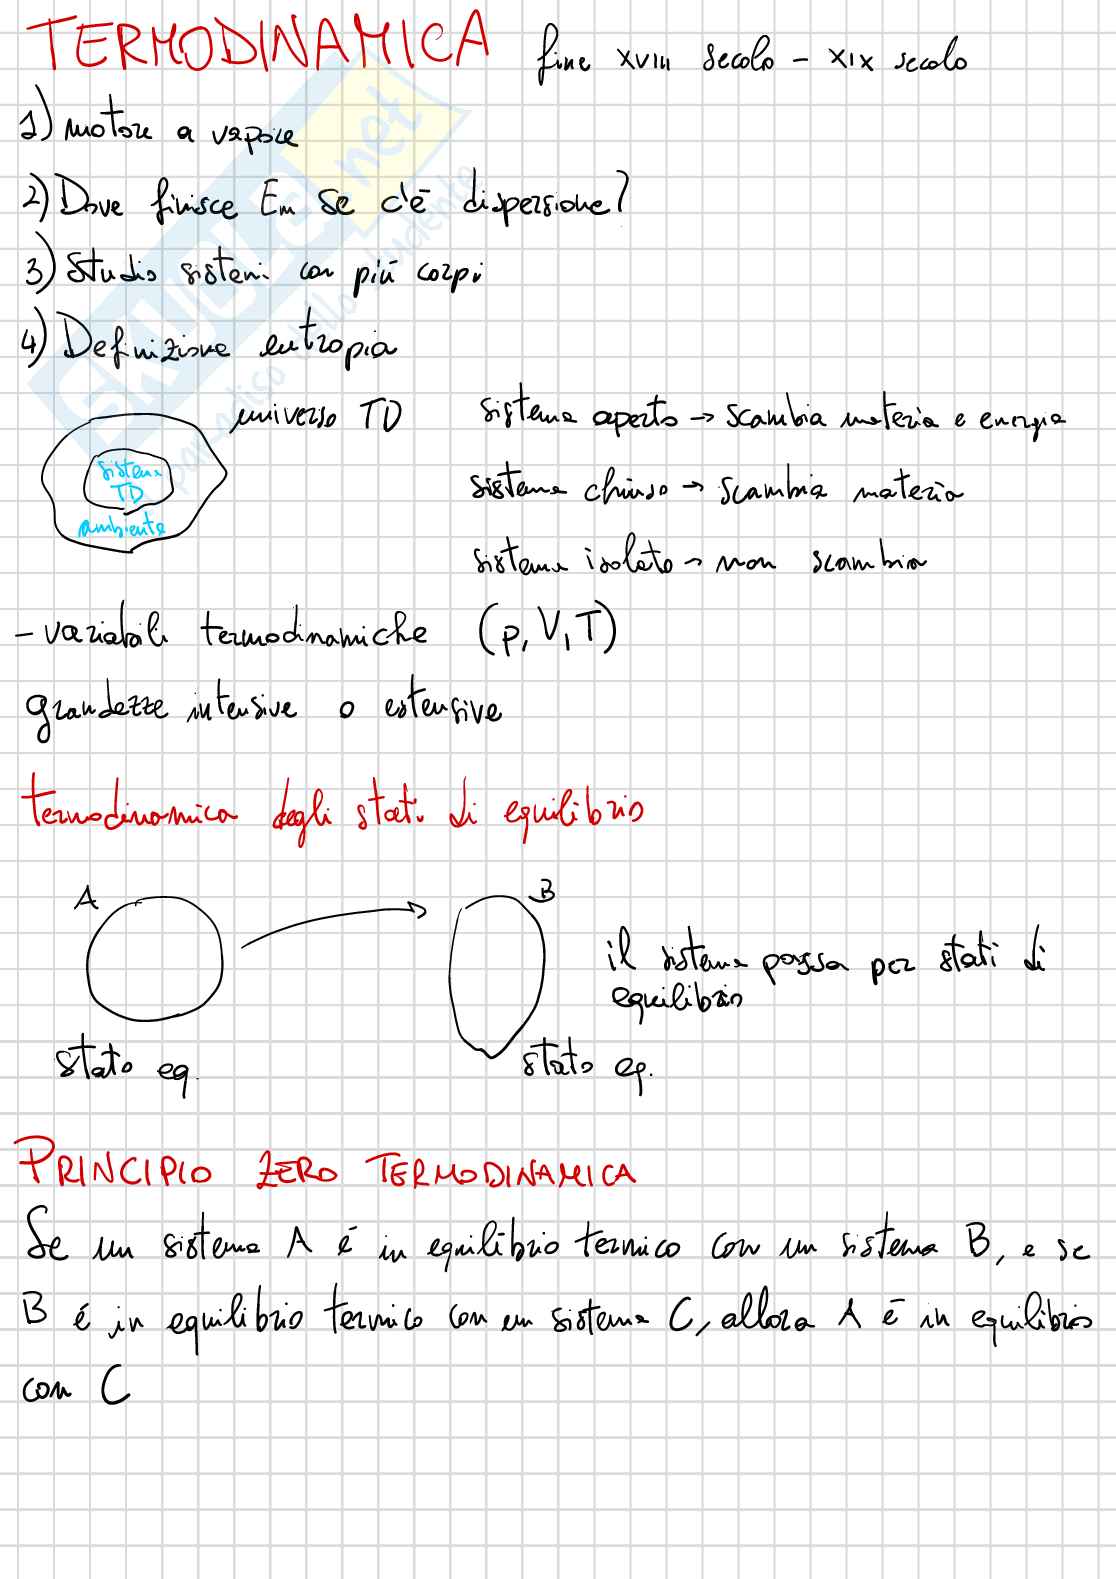 TERMODINAMICA fine XVIII secolo - XIX secolo
1) motore a vapore
2) Dove finisce Em se c'è dispersione?
3) Studio sistemi con più corpi
4) Definizione entropia
universo TD
sistema TD
ambiente
sistema aperto → scambia materia e energia
sistema chiuso → scambia materia
sistema isolato → non scambia
- variabili termodinamiche (p, V, T)
grandezze intensive o estensive
termodinamica degli stati di equilibrio
A
B
stato eq.
stato eq.
il sistema passa per stati di
equilibrio
PRINCIPIO ZERO TERMODINAMICA
Se un sistema A é in equilibrio termico con un sistema B, e se
B é in equilibrio termico con un sistema C, allora A é in equilibrio
con C
SKUOLA.net